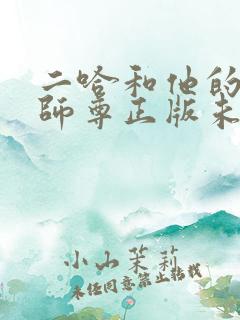 二哈和他的
師尊正版未
小山茉莉
未经同意禁止转载